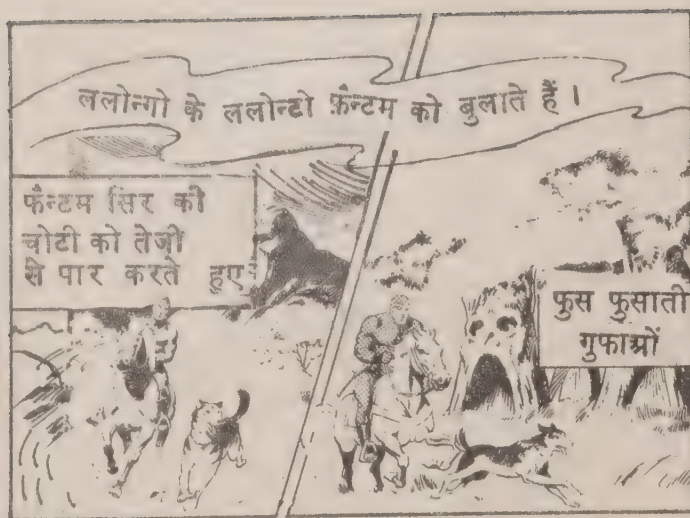 ललोन्गो के ललोन्टो फ़ैन्टम को बुलाते हैं।
फैन्टम सिर की
चोटी को तेज़ी
से पार करते हुए
फुस फुसाती
गुफाओं